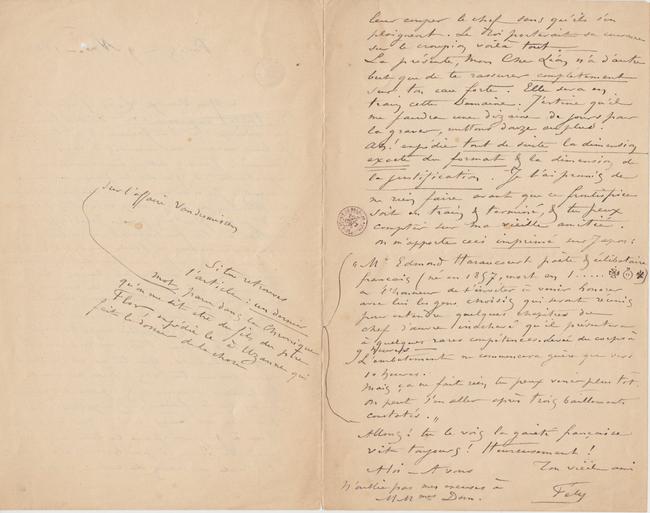 sur l'affaire Vandersmissen
Si tu retrouves
l'article : un dernier
mot, paru dans la Chronique
qu'on me dit être du fils du père
Flor expédie le à Uzanne qui
fait le dossier de la chose
leur couper le chef sans qu'ils s'en
plaignent. Le Roi porterait sa couronne
sur le croupion voilà tout.
La présente, mon Cher Léon n'a d'autre
but que de te rassurer complètement
sur ton eau forte. Elle sera en
train cette Semaine. J'estime qu'il
me faudra une dizaine de jours pour
la graver, mettons douze au plus.
expédie tout de suite la dimension
exacte du format & la dimension de
la justification. Je t'ai promis de
ne rien faire avant que ce frontispice
soit en train & terminé, & tu peux
compter sur ma vieille amitié.
On m'apporte ceci imprimé sur Japon:
"Mr Edmond Haraucourt poète & célibataire
français (né en 1857, mort en 1.....
a l'honneur de t'inviter à venir honorer
avec lui les gens choisis qui seront réunis
pour entendre quelques chapitres du
chef d'œuvre inachevé qu'il présentera
à quelques rares compétences. levée du corps à
9 heures
L'embêtement ne commencera guère que vers
10 heures.
Mais, ça ne fait rien, tu peux venir plus tôt.
On peut s'en aller après trois baillements
constatés."
Allons! tu le vois la gaieté française
vit toujours! Heureusement!
A toi - A vous
Ton vieil ami
N'oublie pas mes excuses à
MMmes Dom.
Fély